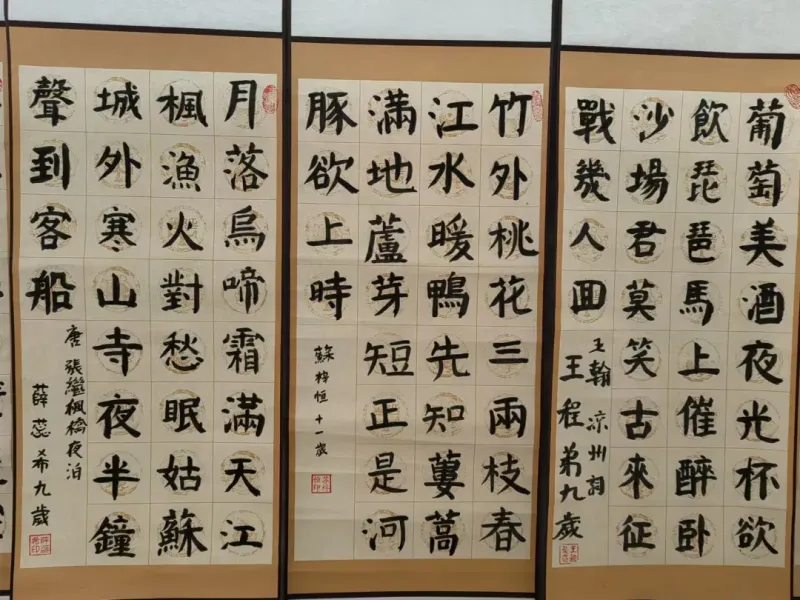 葡萄美酒夜光杯欲
飲琵琶馬上催醉卧
沙場君莫笑古來征
戰幾人囬
王翰 凉州詞
王程弟九歲
竹外桃花三兩枝春
江水暖鴨先知蔞蒿
滿地蘆芽短正是河
豚欲上時
蘇梓恒十一歲
月落烏啼霜滿天江
楓漁火對愁眠姑蘇
城外寒山寺夜半鐘
聲到客船
唐 張繼楓橋夜泊
薛蕊希九歲